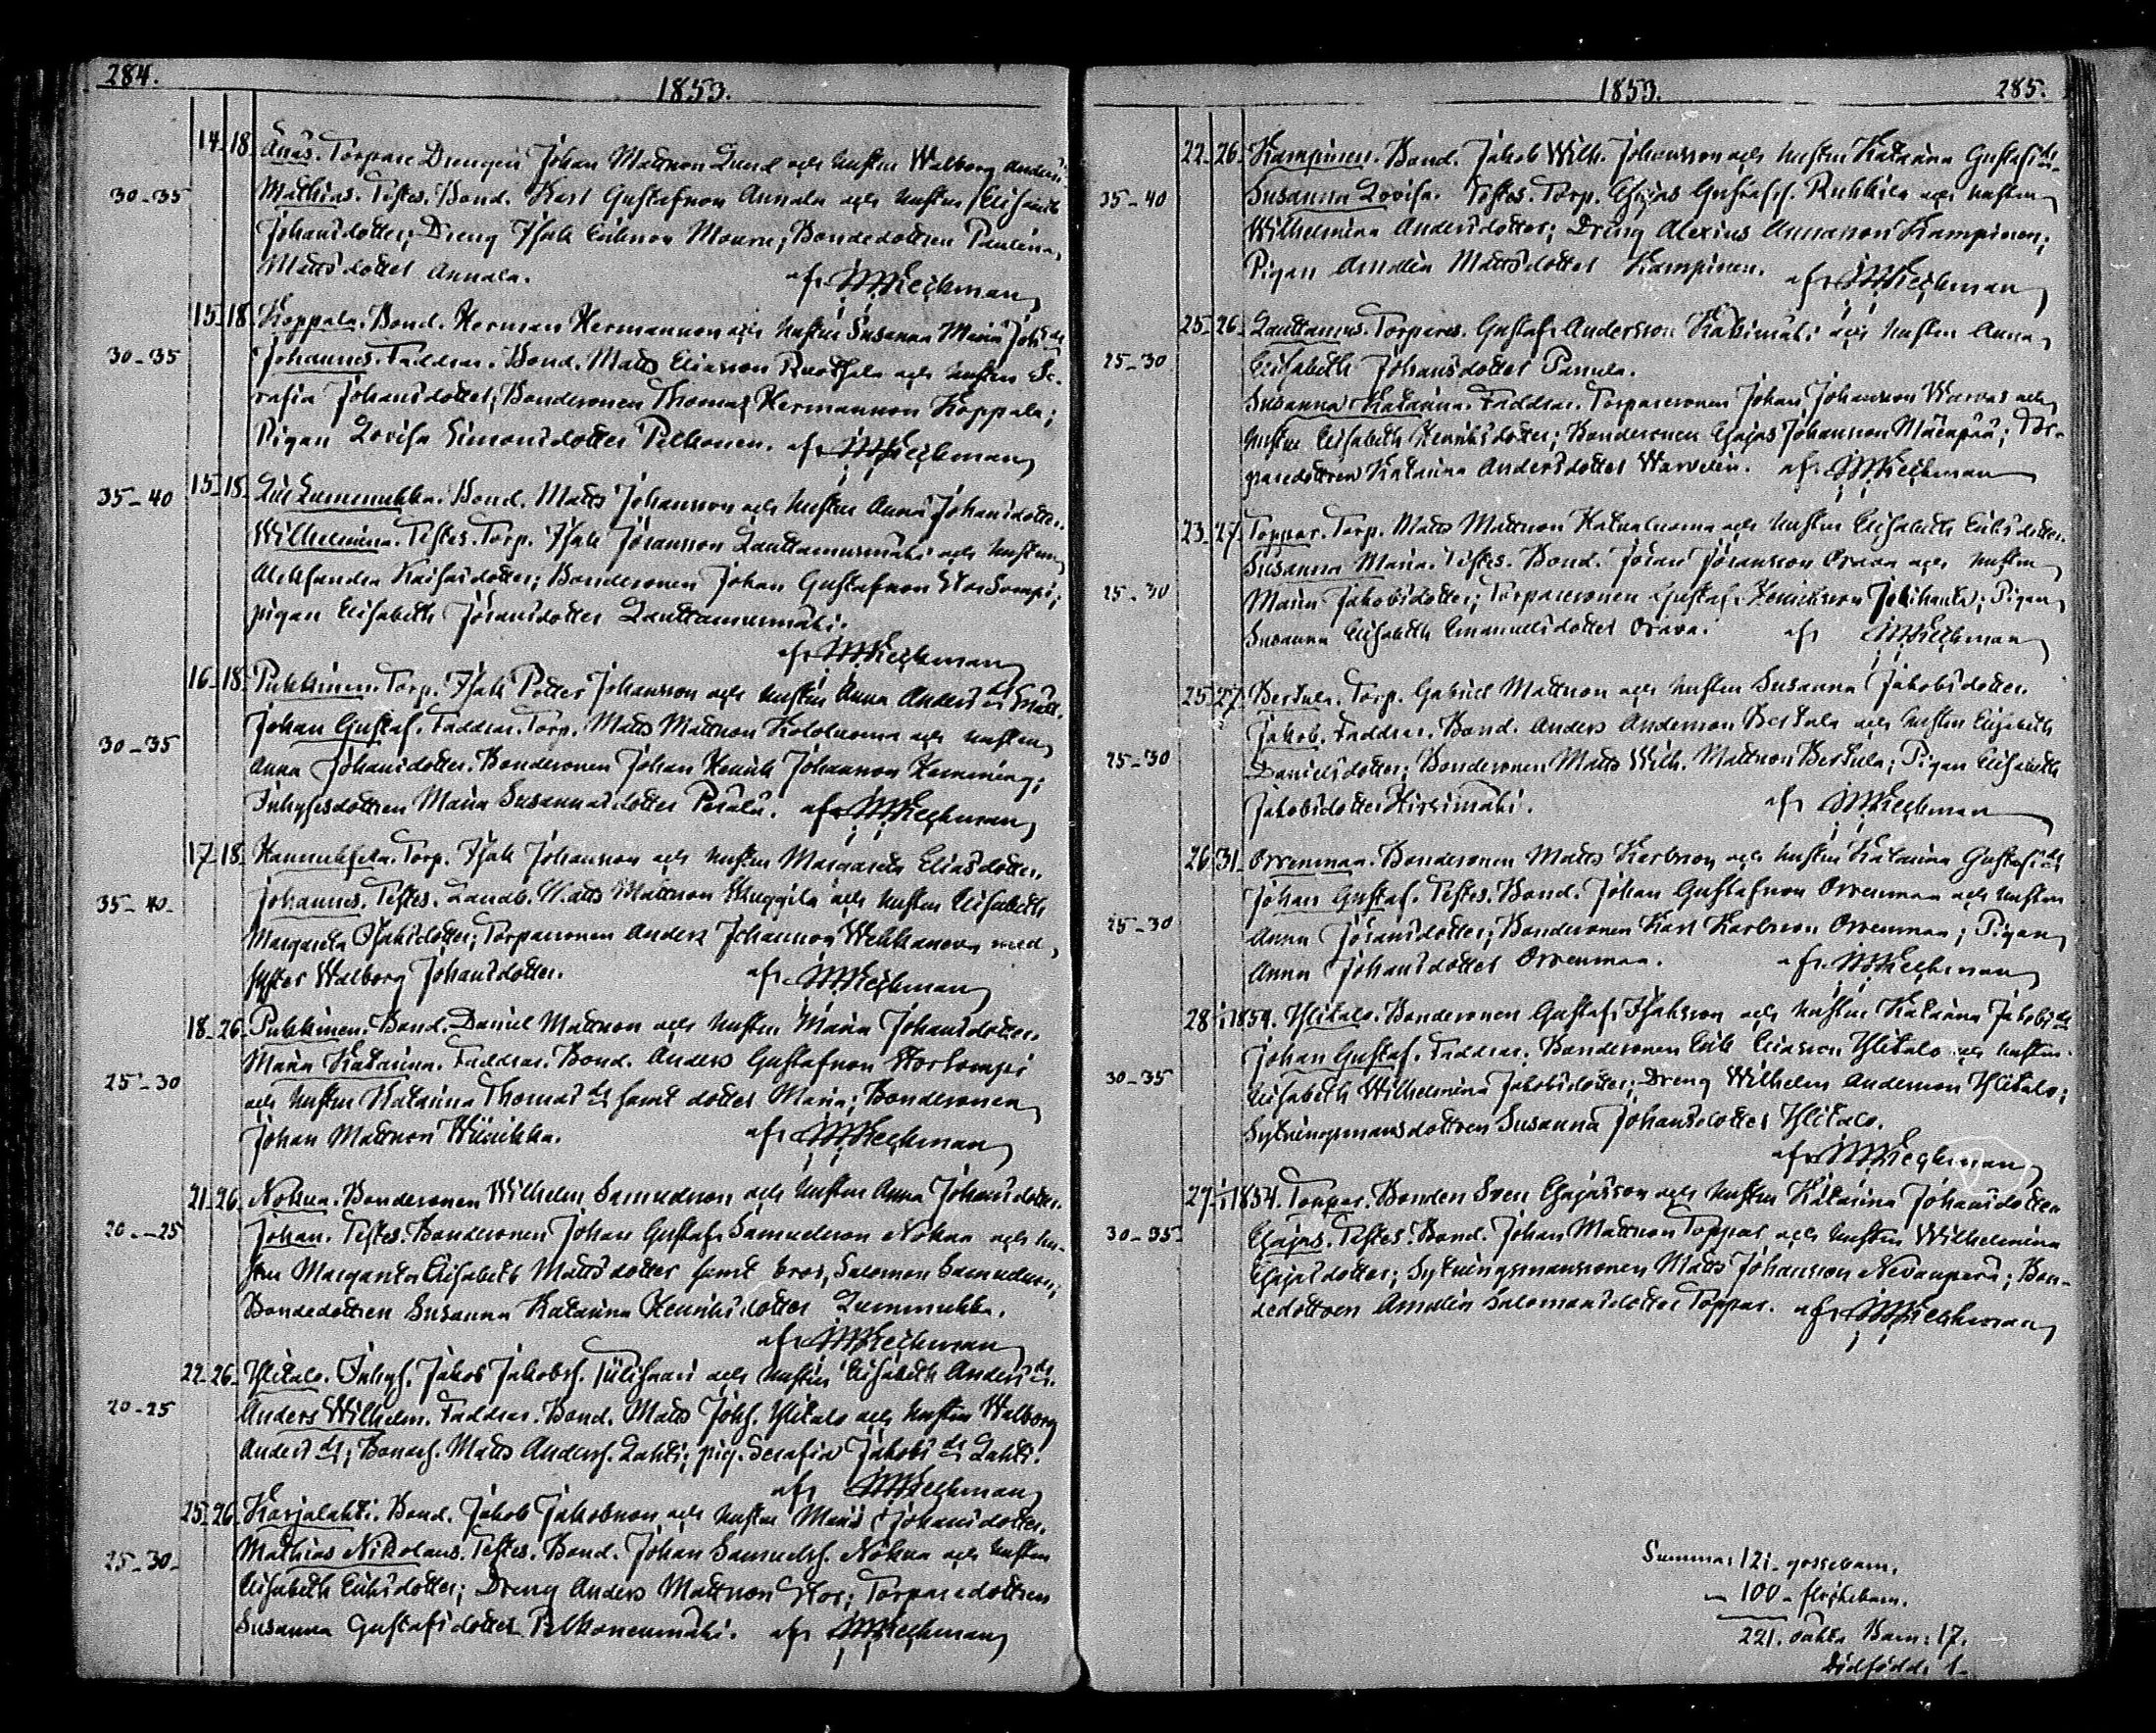 284.
1853.
14. 18. Änäs. Torpare Drengen Johan Mattsson Lund och hustru Walborg Anders
30-35 Mathias. Testes. Bond. Karl Gustafsson Annala och hustru Elisabeth
Johansdotter; Dreng Isak Eriksson Mouru; Bondedottren Paulina
Mattsdotter Annala. af
15. 18. Koppala. Bond. Herman Hermansson och hustru Susanna Maria Johsdr
30-35 Johannes. Faddrar. Bond. Matts Eliasson Ruotsala och hustru Se-
rafia Johansdotter; Bondesonen Thomas Hermansson Koppala;
Pigan Lovisa Simonsdotter Pelkonen. af
35-40 15. 18. Lummukka. Bond. Matts Johansson och hustru Anna Johansdotter.
Wilhelmina. Testes. Torp. Isak Jöransson Lauttamusmäki och hustru
Aleksandra Kaisasdotter; Bondesonen Johan Gustafsson Storsompi;
pigan Elisabeth Jöransdotter Lauttamusmäki.
af
16. 18. Pukkinen. Torp. Isak Petter Johansson och hustru Anna Anders dr
Johan Gustaf. Faddrar. Torp. Matts Mattsson Kotoluoma och hustru
30-35 Anna Johansdotter. Bondesonen Johan Henrik Johansson Hemming;
Inhysesdottren Maria Susannasdotter Perälä. af
17. 18. Hannuksela. Torp. Isak Johansson och hustru Margareta Eliasdotter.
35-40. Johannes. Testes. Landb. Matts Mattsson Skuggila och hustru Elisabeth
Margareta Isaksdotter; Torparesonen Anders Johansson Wehkaneva med
syster Walborg Johansdotter. af
18. 26. Pukkinen. Bond. Daniel Mattsson och hustru Maria Johansdotter.
Maria Katarina. Faddrar. Bond. Anders Gustafsson Storsompi
25-30 och hustru Katarina Thomas dr samt dotter Maria; Bondesonen
Johan Mattsson Wiinikka. af
21. 26. Nokua. Bondesonen Wilhelm Samuelsson och hustru Anna Johansdotter.
20-25 Johan. Testes. Bondesonen Johan Gustaf Samuelsson Nokua och hu-
stru Margareta Elisabeth Mattsdotter samt bror, Salomon Samuelsson;
Bondedottren Susanna Katarina Henriksdotter Lummukka.
af
22. 26. Ylitalo. Inhys. Jakob Jakobss. och hustru Elisabeth Anders dr.
20-25 Anders Wilhelm. Faddrar. Bond. Matts Johs. Ylitalo och hustru Walborg
Anders dr; Bondes. Matts Anderss. Lahti; pig. Serafia Jakobs dr Lahti.
af
25. 26. Karjalahti. Bond. Jakob Jakobsson och hustru Maria Johansdotter.
25-30. Mathias Nikolaus. Testes. Bond. Johan Samuelss. Nokua och hustru
Elisabeth Eriksdotter; Dreng Anders Mattsson Stor; Torparedottren
Susanna Gustafsdotter Pelkonenmäki. af
1853.
285.
22. 26. Kampinen. Bond. Jakob Wilh. Johansson och hustru Katarina Gustafsdr.
35-40 Susanna Lovisa. Testes. Torp. Esajas Gustafss. Ruhkila och hustru
Wilhelmina Andersdotter; Dreng Alexius Annasson Kampinen;
Pigan Amalia Mattsdotter Kampinen. af
25. 26. Lauttamus. Torpares. Gustaf Andersson och hustru Anna
25-30 Elisabeth Johansdotter Panula.
Susanna Katarina. Faddrar. Torparesonen Johan Johansson Warvas och
hustru Elisabeth Henriksdotter; Bondesonen Esajas Johansson Mäenpää; Tor-
paredottren Katarina Andersdotter. af
23. 27. Toppar. Torp. Matts Mattsson Katualuoma och hustru Elisabeth Eriksdotter.
Susanna Maria. Testes. Bond. Jöran Jöransson Orava och hustru
25-30 Maria Jakobsdotter; Torparesonen Gustaf Henriksson; Pigan
Susanna Elisabeth Emanuelsdotter Orava. af
25. 27. Bertula. Torp. Gabriel Mattsson och hustru Susanna Jakobsdotter.
Jakob. Faddrar. Bond. Anders Andersson Bertula och hustru Elisabeth
25-30 Danielsdotter; Bondesonen Matts Wilh. Mattsson Bertula; Pigan Elisabeth
Jakobsdotter Hirsimäki. af
26. 31. Orrenmaa. Bondesonen Matts Karlsson och hustru Katarina Gustafsdr
Johan Gustaf. Testes. Bond. Johan Gustafsson Orrenmaa och hustru
25-30 Anna Jöransdotter; Bondesonen Karl Karlsson Orrenmaa; Pigan
Anna Johansdotter Orrenmaa. af
28. 1/1 1854. Ylitalo. Bondesonen Gustaf Isaksson och hustru Katarina Jakobsdr
Johan Gustaf. Faddrar. Bondesonen Erik Eriksson Ylitalo och hustru
30-35 Elisabeth Wilhelmina Jakobsdotter; Dreng Wilhelm Andersson Ylitalo;
Sytningsmansdottren Susanna Johansdotter Ylitalo.
af
27. 1/1 1854. Toppar. Bonden Sven Esajasson och hustru Katarina Johansdotter
30-35. Esajas. Testes. Bond. Johan Mattsson Toppar och hustru Wilhelmina
Esajasdotter; Sytningsmanssonen Matts Johansson Nevanperä; Bon-
dedottren Amalia Salomonsdotter Toppar. af
Summa: 121. gossebarn.
— 100 - flickebarn.
221. oäkta Barn: 17.
dödfödd. 1.